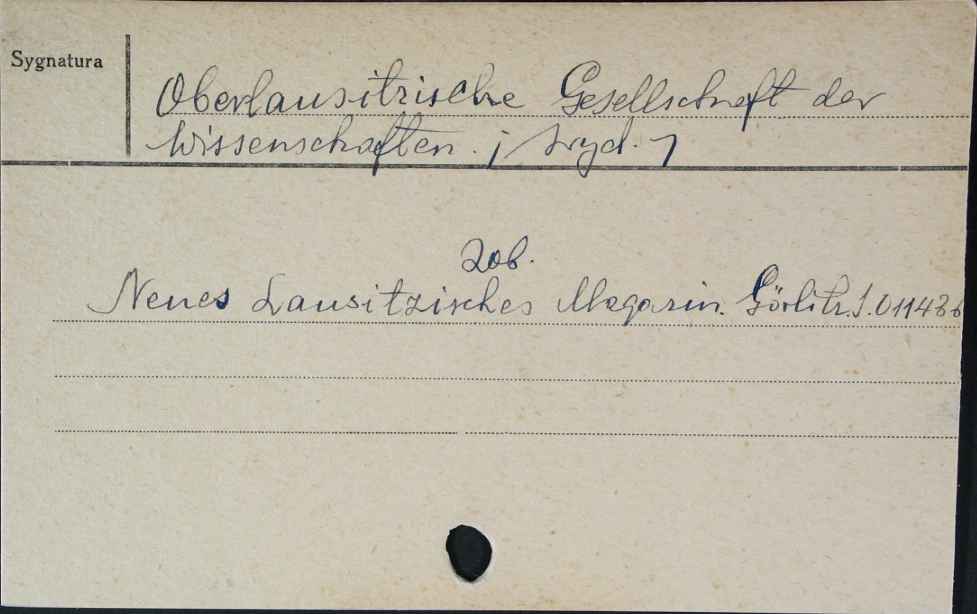 Sygnatura
Oberlausitzische Gesellschaft der
Wissenschaften. / wyd. /
Zob.
Neues Lausitzisches Magazin. Görlitz S.01148